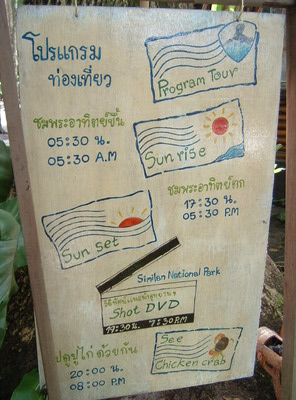 โปรแกรม
ท่องเที่ยว
Program Tour
ชมพระอาทิตย์ขึ้น
05:30 น.
05:30 A.M
Sun rise
ชมพระอาทิตย์ตก
17:30 น.
05:30 P.M
Sun set
Similan National Park
Shot DVD
19:30 น. 7:30 P.M
ปูไก่ด้วยกัน
20:00 น.
08:00 P.M
See
Chicken crab